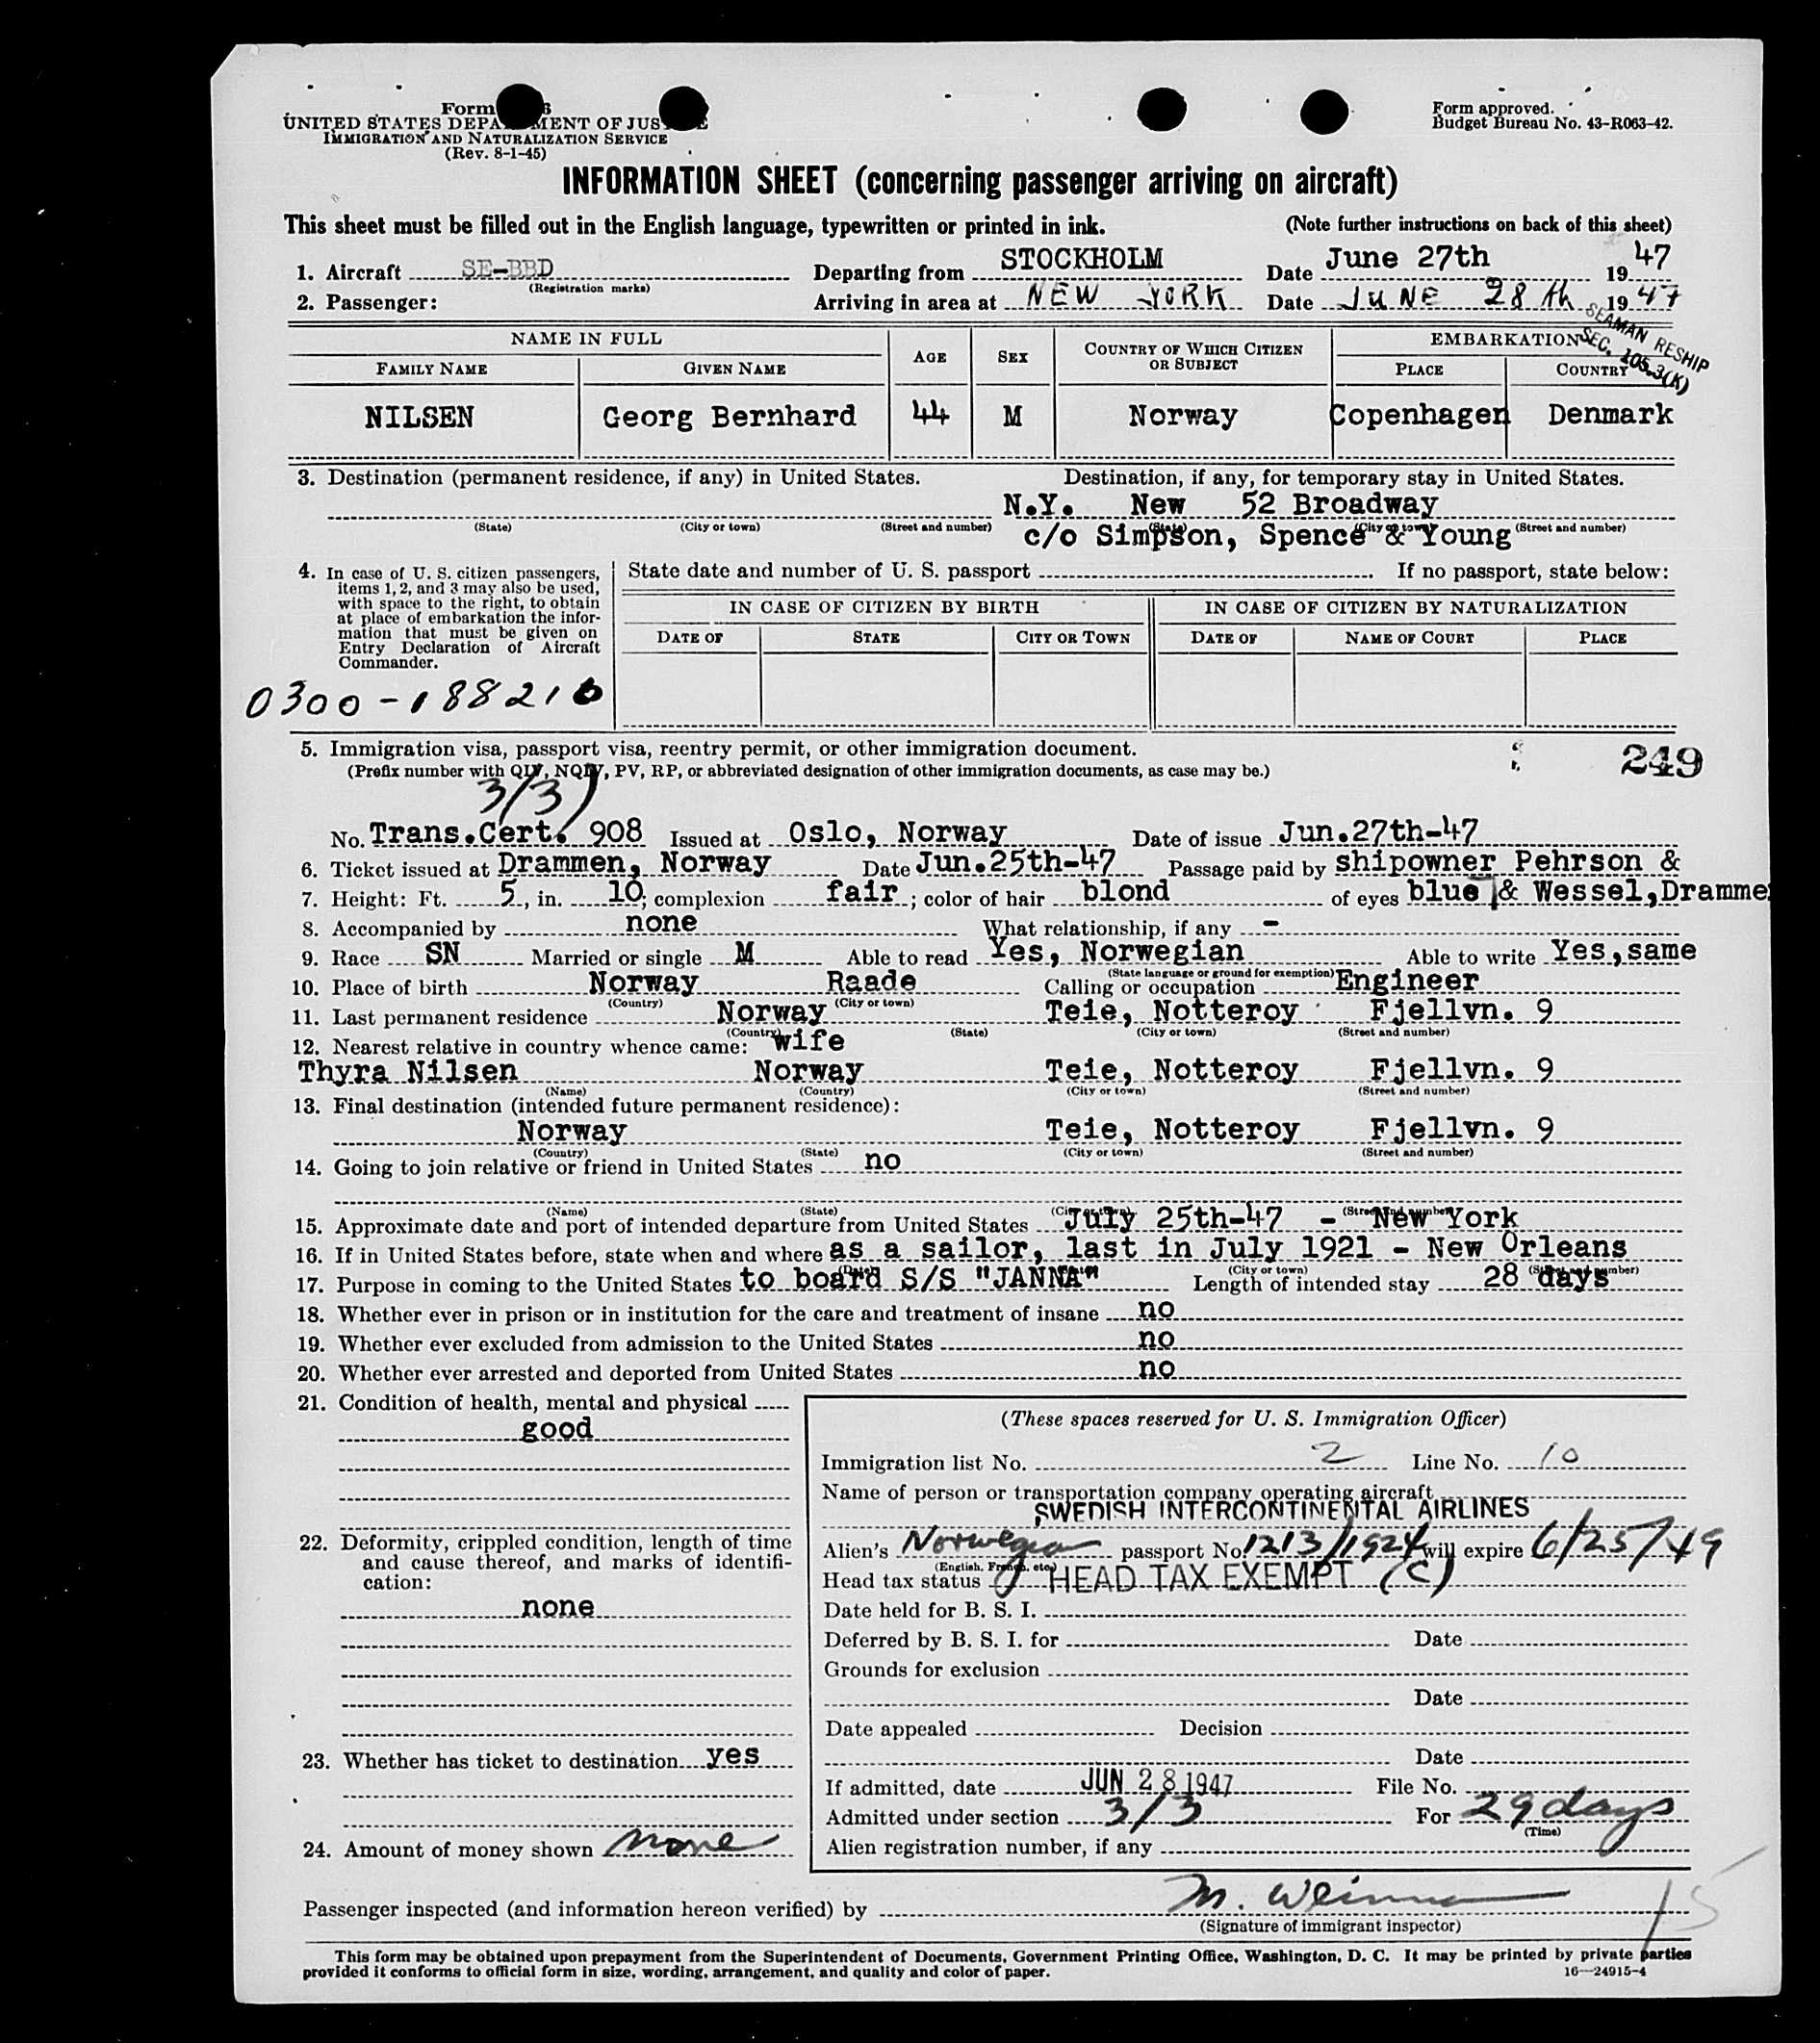 Form
UNITED STATES DEPARTMENT OF JUSTICE
IMMIGRATION AND NATURALIZATION SERVICE
(Rev. 8-1-45)
Form approved.
Budget Bureau No. 43-R063-42.
INFORMATION SHEET (concerning passenger arriving on aircraft)
This sheet must be filled out in the English language, typewritten or printed in ink. (Note further instructions on back of this sheet)
1. Aircraft SE-BBD Departing from STOCKHOLM Date June 27th 1947
(Registration marks)
2. Passenger: Arriving in area at NEW YORK Date JUNE 28th 1947
SEAMAN RESHIP
SEC. 105.3(K)
NAME IN FULL AGE SEX COUNTRY OF WHICH CITIZEN OR SUBJECT EMBARKATION
FAMILY NAME GIVEN NAME PLACE COUNTRY
NILSEN Georg Bernhard 44 M Norway Copenhagen Denmark
3. Destination (permanent residence, if any) in United States. Destination, if any, for temporary stay in United States.
N.Y. New 52 Broadway
(State) (City or town) (Street and number) (State) (City or town) (Street and number)
c/o Simpson, Spence & Young
4. In case of U. S. citizen passengers,
items 1, 2, and 3 may also be used,
with space to the right, to obtain
at place of embarkation the infor-
mation that must be given on
Entry Declaration of Aircraft
Commander.
State date and number of U. S. passport . If no passport, state below:
IN CASE OF CITIZEN BY BIRTH IN CASE OF CITIZEN BY NATURALIZATION
DATE OF STATE CITY OR TOWN DATE OF NAME OF COURT PLACE
0300-188216
5. Immigration visa, passport visa, reentry permit, or other immigration document.
(Prefix number with QIV, NQIV, PV, RP, or abbreviated designation of other immigration documents, as case may be.)
249
3/3)
No. Trans.Cert. 908 Issued at Oslo, Norway Date of issue Jun.27th-47
6. Ticket issued at Drammen, Norway Date Jun.25th-47 Passage paid by shipowner Pehrson &
7. Height: Ft. 5, in. 10; complexion fair; color of hair blond of eyes blue & Wessel,Dramme
8. Accompanied by none What relationship, if any -
9. Race SN Married or single M Able to read Yes, Norwegian Able to write Yes,same
(State language or ground for exemption)
10. Place of birth Norway Raade Calling or occupation Engineer
(Country) (City or town)
11. Last permanent residence Norway Teie, Notteroy Fjellvn. 9
(Country) (State) (City or town) (Street and number)
12. Nearest relative in country whence came: wife
Thyra Nilsen Norway Teie, Notteroy Fjellvn. 9
(Name) (Country) (City or town) (Street and number)
13. Final destination (intended future permanent residence):
Norway Teie, Notteroy Fjellvn. 9
(Country) (State) (City or town) (Street and number)
14. Going to join relative or friend in United States no
(Name) (State) (City or town) (Street and number)
15. Approximate date and port of intended departure from United States July 25th-47 - New York
16. If in United States before, state when and where as a sailor, last in July 1921 - New Orleans
(Date) (State) (City or town) (Street and number)
17. Purpose in coming to the United States to board S/S "JANNA" Length of intended stay 28 days
18. Whether ever in prison or in institution for the care and treatment of insane no
19. Whether ever excluded from admission to the United States no
20. Whether ever arrested and deported from United States no
21. Condition of health, mental and physical
good
22. Deformity, crippled condition, length of time
and cause thereof, and marks of identifi-
cation:
none
23. Whether has ticket to destination yes
24. Amount of money shown none
(These spaces reserved for U. S. Immigration Officer)
Immigration list No. 2 Line No. 10
Name of person or transportation company operating aircraft
SWEDISH INTERCONTINENTAL AIRLINES
Alien's Norwegian passport No. 1213/1924 will expire 6/25/49
(English, French, etc.)
Head tax status HEAD TAX EXEMPT (C)
Date held for B. S. I.
Deferred by B. S. I. for Date
Grounds for exclusion
Date
Date appealed Decision
Date
If admitted, date JUN 28 1947 File No.
Admitted under section 3/3 For 29 days
(Time)
Alien registration number, if any
Passenger inspected (and information hereon verified) by M.
(Signature of immigrant inspector)
15
This form may be obtained upon prepayment from the Superintendent of Documents, Government Printing Office, Washington, D. C. It may be printed by private parties
provided it conforms to official form in size, wording, arrangement, and quality and color of paper.
16—24915-4